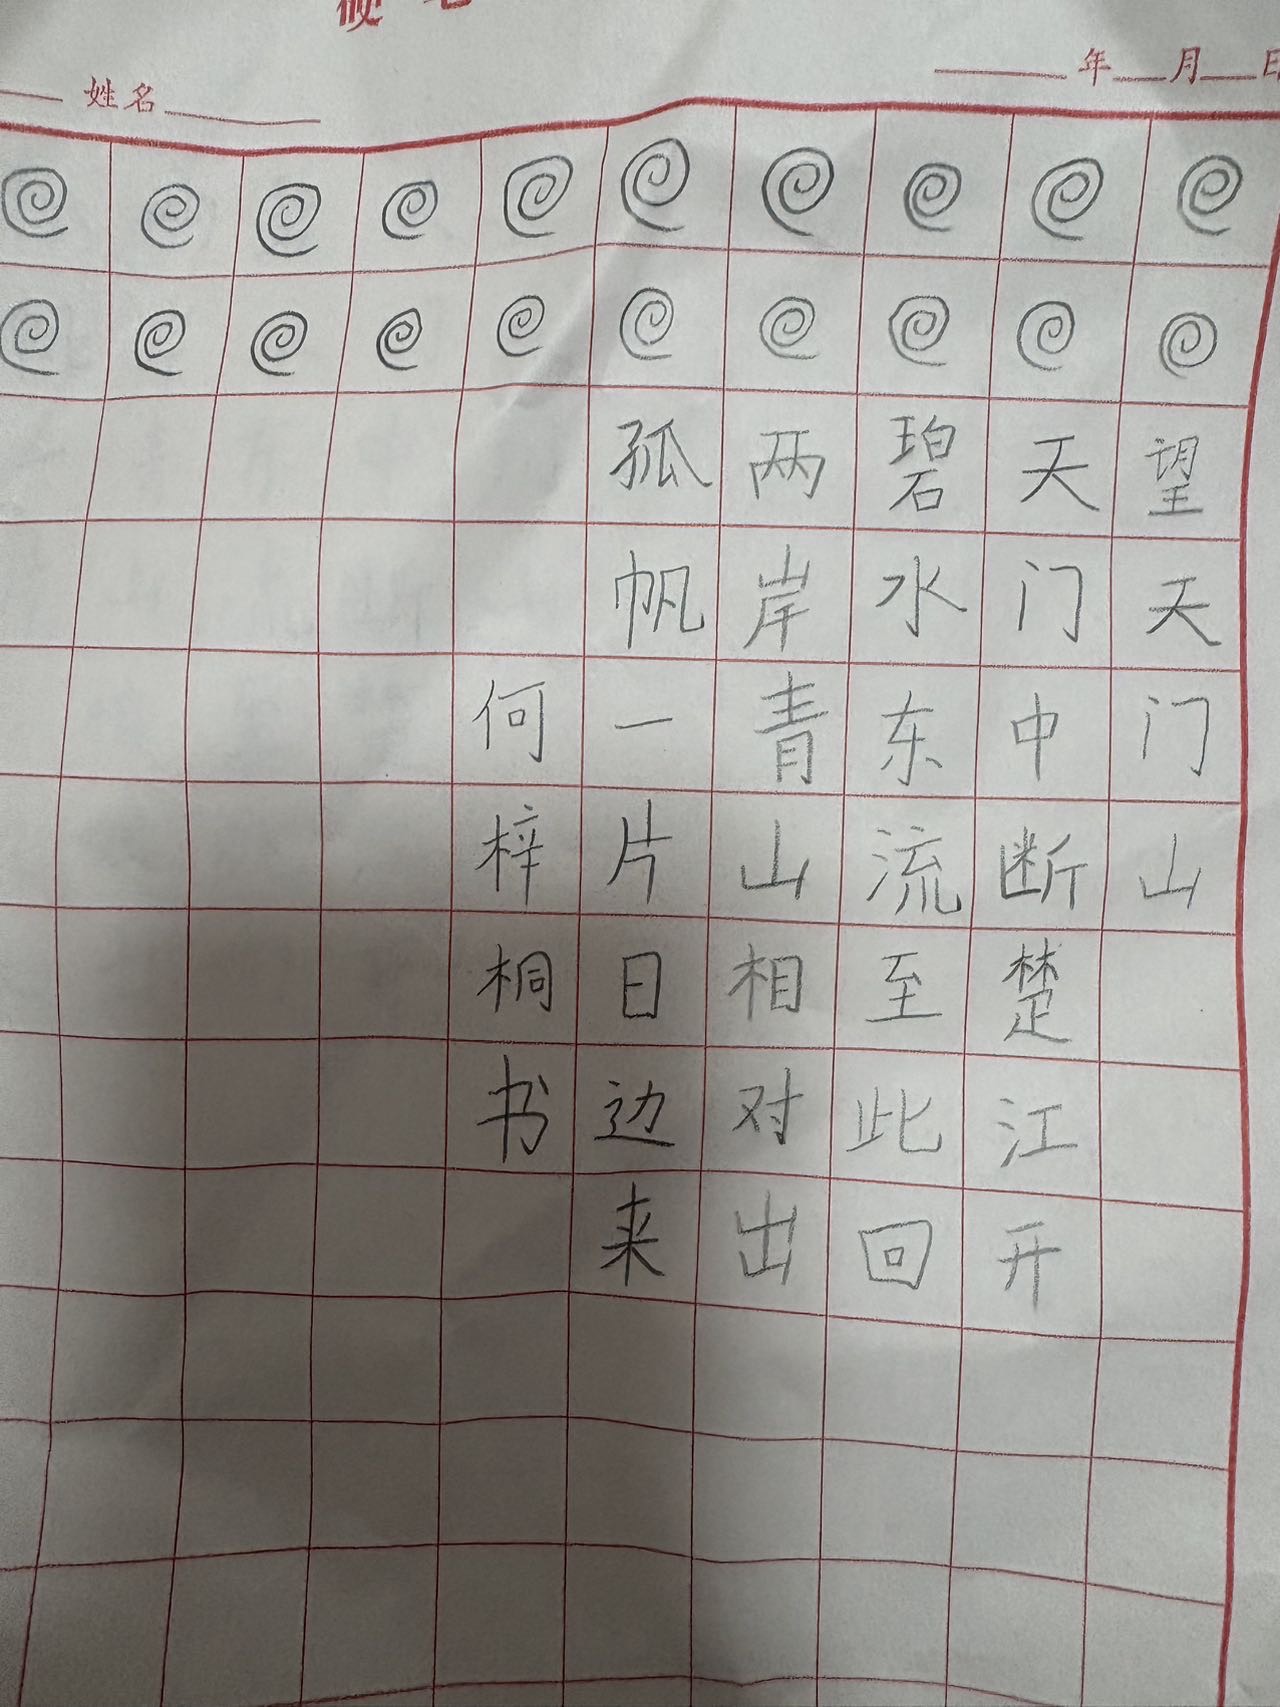 姓名
年 月 日
望天门山
天门中断楚江开
碧水东流至此回
两岸青山相对出
孤帆一片日边来
何梓桐书